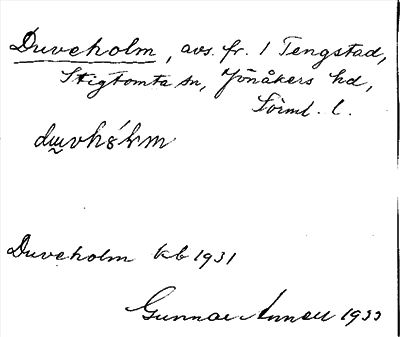 Duveholm, avs. fr. 1 Tengstad,
Stigtomta sn, Jönåkers hd,
Sörml. l.
Duveholm kb 1931
Gunnar 1933